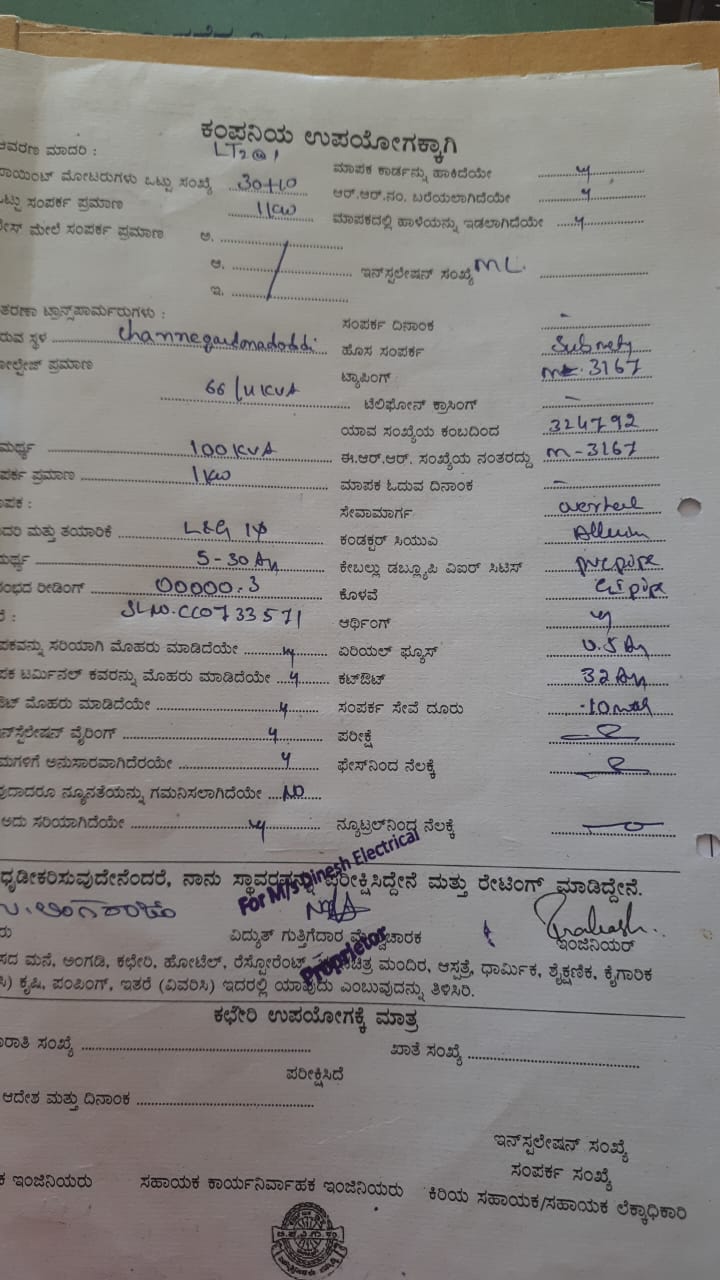 ಕಂಪನಿಯ ಉಪಯೋಗಕ್ಕಾಗಿ
ಆವರಣ ಮಾದರಿ : LT2
ಮಾಪಕ ಕಾರ್ಡನ್ನು ಹಾಕಿದೆಯೇ y
ಪಾಯಿಂಟ್ ಮೋಟರುಗಳು ಒಟ್ಟು ಸಂಖ್ಯೆ 30+10
ಆರ್.ಆರ್.ನಂ. ಬರೆಯಲಾಗಿದೆಯೇ y
ಒಟ್ಟು ಸಂಪರ್ಕ ಪ್ರಮಾಣ 1kw
ಮಾಪಕದಲ್ಲಿ ಹಾಳೆಯನ್ನು ಇಡಲಾಗಿದೆಯೇ y
ಮೇಲೆ ಸಂಪರ್ಕ ಪ್ರಮಾಣ ಅ.
ಆ.
ಇನ್‌ಸ್ಪಲೇಷನ್ ಸಂಖ್ಯೆ ML.
ಇ.
ತರಣಾ ಟ್ರಾನ್ಸ್‌ಪಾರ್ಮರುಗಳು :
ಸಂಪರ್ಕ ದಿನಾಂಕ -
ರುವ ಸ್ಥಳ channegowdanadoddi
ಹೊಸ ಸಂಪರ್ಕ
ವೋಲ್ಟೇಜ್ ಪ್ರಮಾಣ 66/11KVA
ಟ್ಯಾಪಿಂಗ್ 3167
ಟೆಲಿಫೋನ್ ಕ್ರಾಸಿಂಗ್ -
ಯಾವ ಸಂಖ್ಯೆಯ ಕಂಬದಿಂದ 324792
ಮರ್ಥ್ಯ 100KVA
ಈ.ಆರ್.ಆರ್. ಸಂಖ್ಯೆಯ ನಂತರದ್ದು m-3167
ಪರ್ಕ ಪ್ರಮಾಣ 1kw
ಮಾಪಕ ಓದುವ ದಿನಾಂಕ -
ಾಪಕ :
ಸೇವಾಮಾರ್ಗ
ದರಿ ಮತ್ತು ತಯಾರಿಕೆ L&G 1φ
ಕಂಡಕ್ಟರ್ ಸಿಯುವಿ
ಮರ್ಥ್ಯ 5-30 Am
ಕೇಬಲ್ಲು ಡಬ್ಲ್ಯೂಪಿ ವಿಐರ್ ಸಿಟಿಸ್ pvc pipe
ಂಭದ ರೀಡಿಂಗ್ 00000.3
ಕೊಳವೆ GI pipe
SLNO.CC0733571
ಆರ್ಥಿಂಗ್ y
ಪಕವನ್ನು ಸರಿಯಾಗಿ ಮೊಹರು ಮಾಡಿದೆಯೇ y
ಏರಿಯಲ್ ಫ್ಯೂಸ್ 0.5 Am
ಪಕ ಟರ್ಮಿನಲ್ ಕವರನ್ನು ಮೊಹರು ಮಾಡಿದೆಯೇ y
ಕಟ್‌ಔಟ್ 32 Am
ಔಟ್ ಮೊಹರು ಮಾಡಿದೆಯೇ y
ಸಂಪರ್ಕ ಸೇವೆ ದೂರು
ನ್‌ಸ್ಪಲೇಷನ್ ವೈರಿಂಗ್ y
ಪರೀಕ್ಷೆ
ಮಗಳಿಗೆ ಅನುಸಾರವಾಗಿದೆರಯೇ y
ಫೇಸ್‌ನಿಂದ ನೆಲಕ್ಕೆ
ವುದಾದರೂ ನ್ಯೂನತೆಯನ್ನು ಗಮನಿಸಲಾಗಿದೆಯೇ NO
ಅದು ಸರಿಯಾಗಿದೆಯೇ y
ನ್ಯೂಟ್ರಲ್‌ನಿಂದ ನೆಲಕ್ಕೆ
For M/s Dinesh Electrical
ಧೃಡೀಕರಿಸುವುದೇನೆಂದರೆ, ನಾನು ಸ್ಥಾವರವನ್ನು ಪರೀಕ್ಷಿಸಿದ್ದೇನೆ ಮತ್ತು ರೇಟಿಂಗ್ ಮಾಡಿದ್ದೇನೆ.
Prakash
ರು
ವಿದ್ಯುತ್ ಗುತ್ತಿಗೆದಾರ ಮೇಲ್ವಿಚಾರಕ
ಇಂಜಿನಿಯರ್
Proprietor
ಸದ ಮನೆ, ಅಂಗಡಿ, ಕಛೇರಿ, ಹೋಟೆಲ್, ರೆಸ್ಟೋರೆಂಟ್, ಚಲನಚಿತ್ರ ಮಂದಿರ, ಆಸ್ಪತ್ರೆ, ಧಾರ್ಮಿಕ, ಶೈಕ್ಷಣಿಕ, ಕೈಗಾರಿಕ
ಸಿ) ಕೃಷಿ, ಪಂಪಿಂಗ್, ಇತರೆ (ವಿವರಿಸಿ) ಇದರಲ್ಲಿ ಯಾವುದು ಎಂಬುವುದನ್ನು ತಿಳಿಸಿರಿ.
ಕಛೇರಿ ಉಪಯೋಗಕ್ಕೆ ಮಾತ್ರ
ರಾತಿ ಸಂಖ್ಯೆ
ಖಾತೆ ಸಂಖ್ಯೆ
ಪರೀಕ್ಷಿಸಿದೆ
ಆದೇಶ ಮತ್ತು ದಿನಾಂಕ
ಇನ್‌ಸ್ಪಲೇಷನ್ ಸಂಖ್ಯೆ
ಸಂಪರ್ಕ ಸಂಖ್ಯೆ
ಕ ಇಂಜಿನಿಯರು
ಸಹಾಯಕ ಕಾರ್ಯನಿರ್ವಾಹಕ ಇಂಜಿನಿಯರು
ಕಿರಿಯ ಸಹಾಯಕ/ಸಹಾಯಕ ಲೆಕ್ಕಾಧಿಕಾರಿ